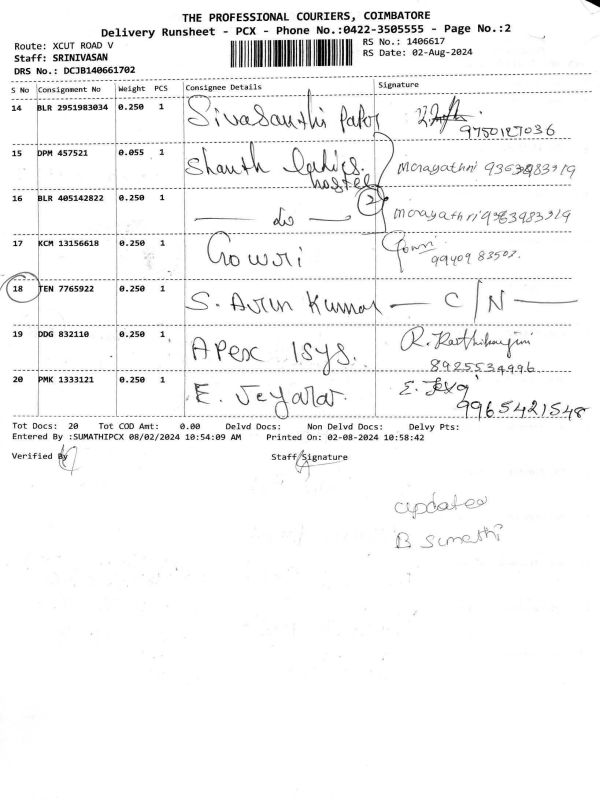 THE PROFESSIONAL COURIERS, COIMBATORE
Delivery Runsheet - PCX - Phone No.:0422-3505555 - Page No.:2
Route: XCUT ROAD V
RS No.: 1406617
Staff: SRINIVASAN
RS Date: 02-Aug-2024
DRS No.: DCJB140661702
S No Consignment No Weight PCS Consignee Details Signature
14 BLR 2951983034 0.250 1 Sivasanthi Paper
9750127036
15 DPM 457521 0.055 1 Shanth Ladies
hostel
16 BLR 405142822 0.250 1 — do — 2
17 KCM 13156618 0.250 1 Gowri Gowri
99409 83502.
18 TEN 7765922 0.250 1 S. Arun Kumar — C/N —
19 DDG 832110 0.250 1 Apex Isys. R.
8925534996
20 PMK 1333121 0.250 1 E. Jeyara E.
9965421548
Tot Docs: 20 Tot COD Amt: 0.00 Delvd Docs: Non Delvd Docs: Delvy Pts:
Entered By :SUMATHIPCX 08/02/2024 10:54:09 AM Printed On: 02-08-2024 10:58:42
Verified By Staff Signature
updated
B Sumathi